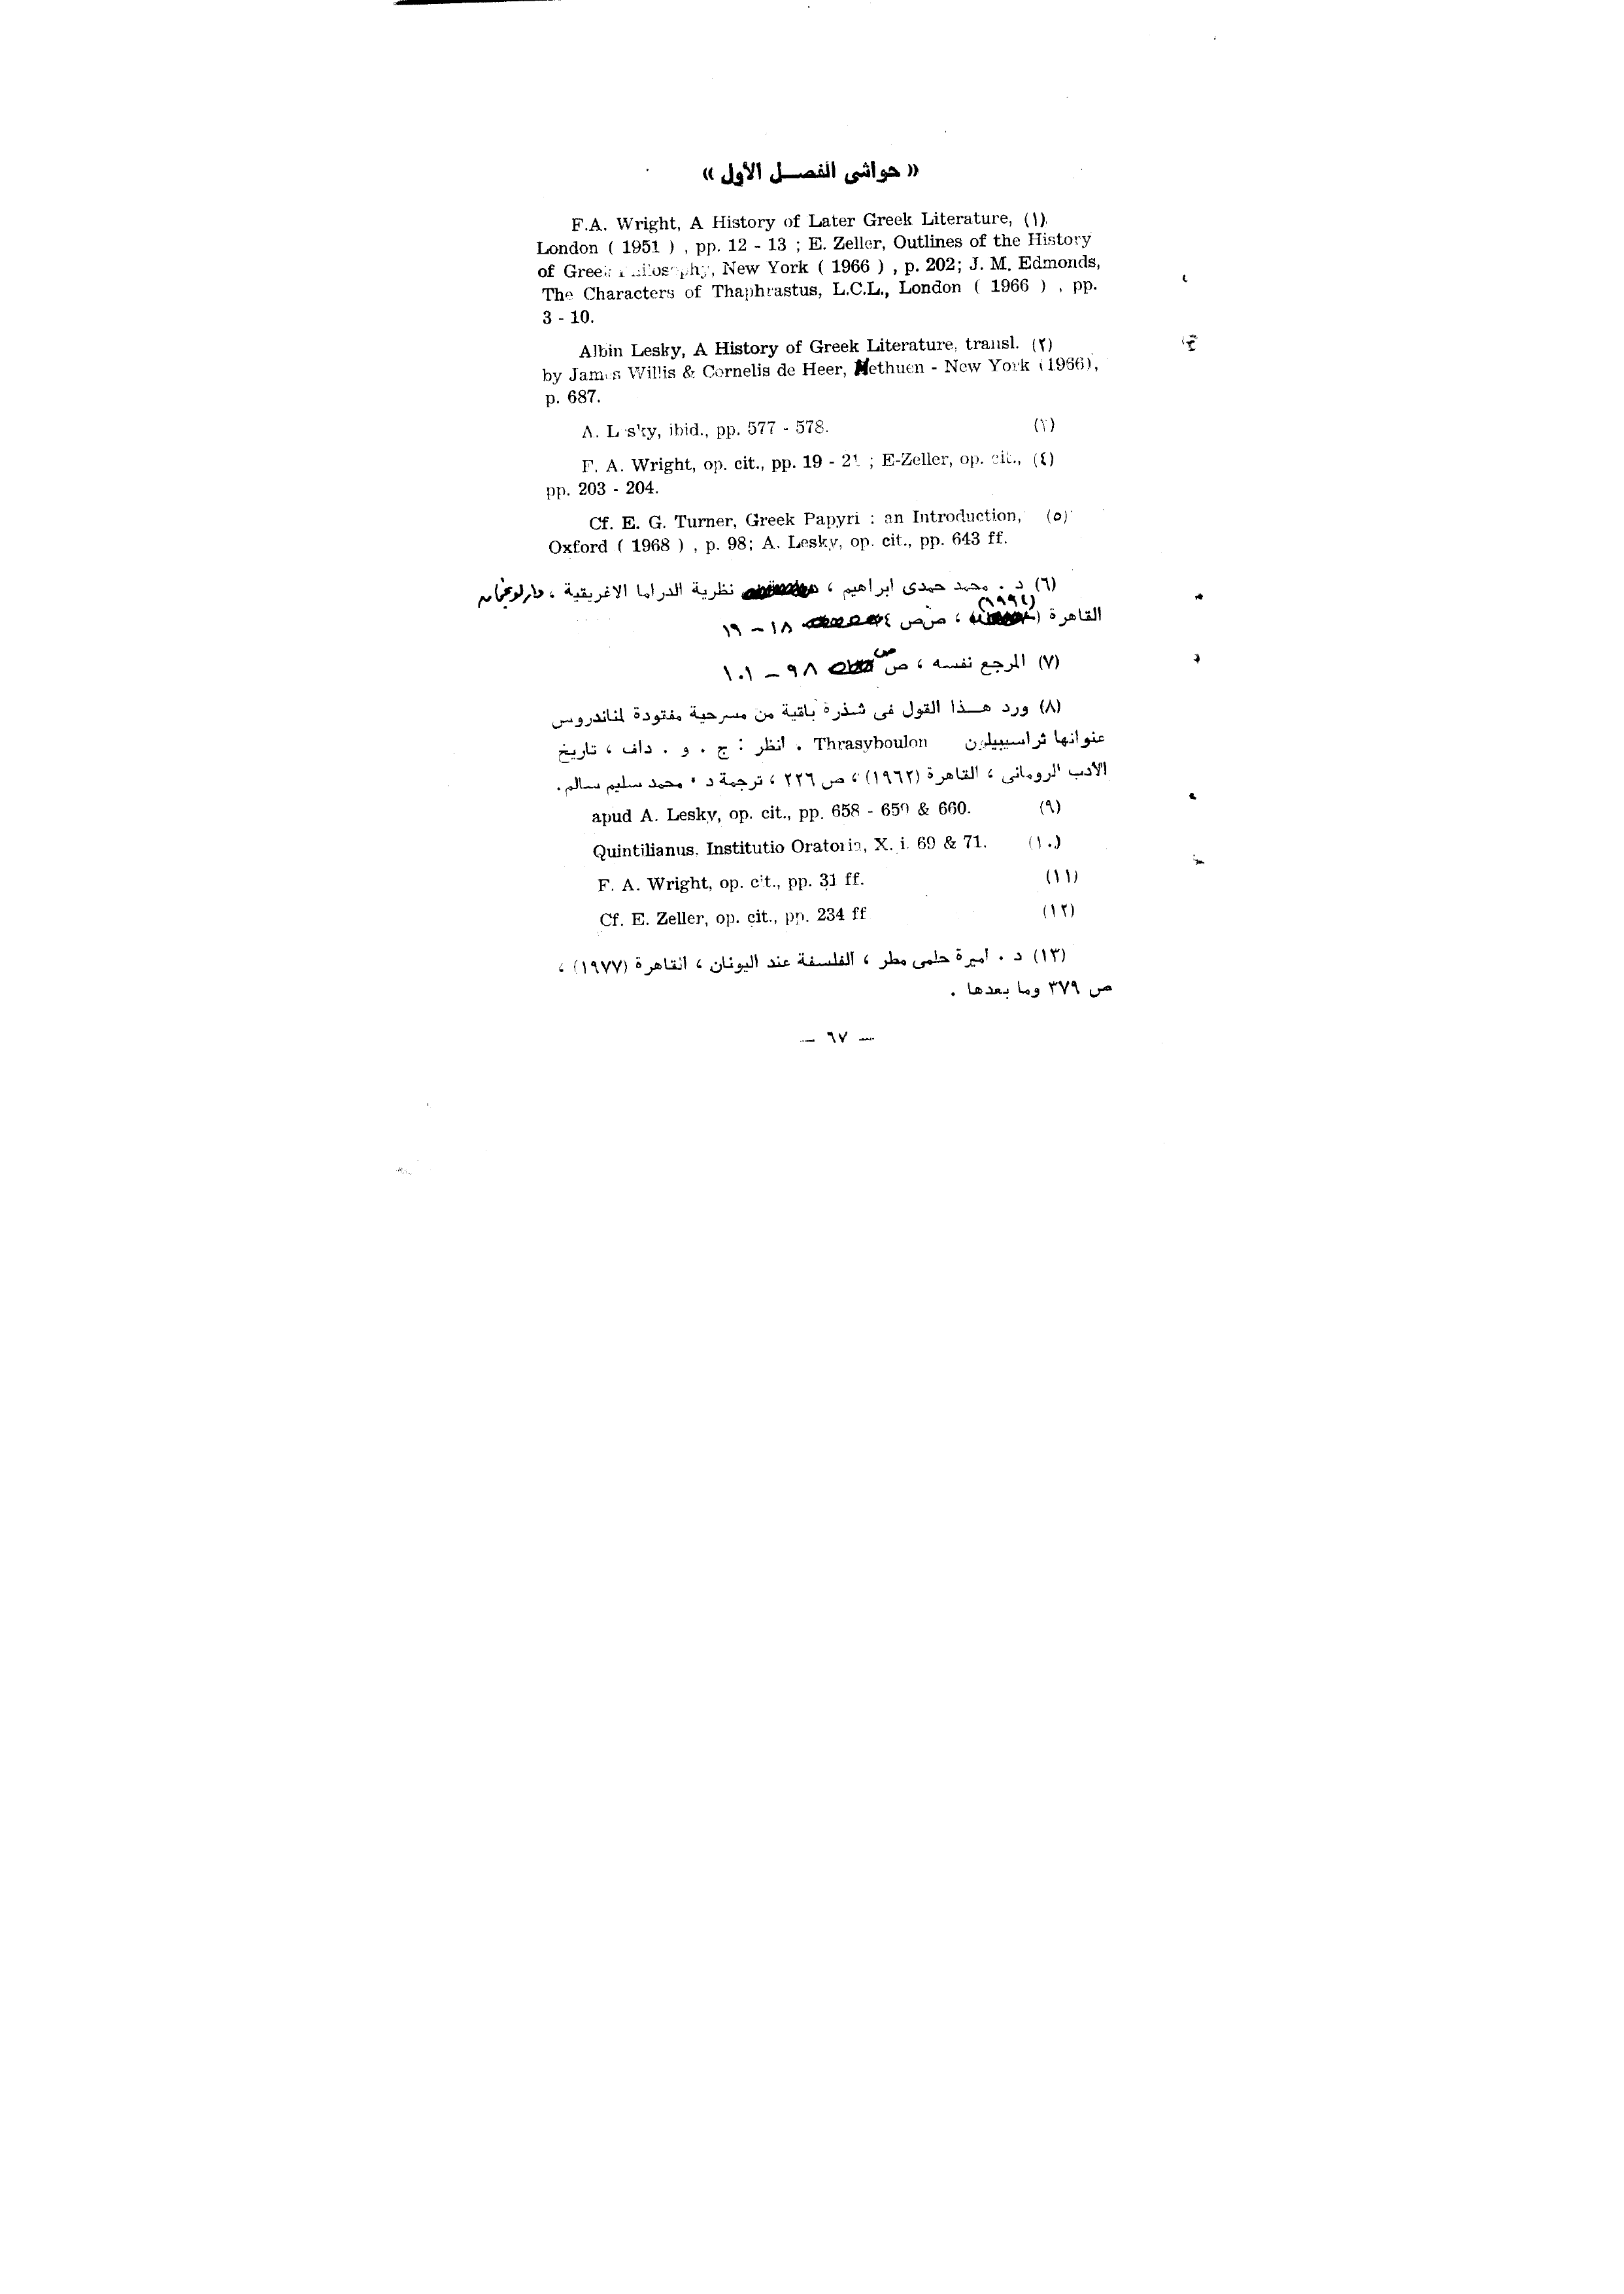 « حواشى الفصل الأول »
(١) F.A. Wright, A History of Later Greek Literature,
London ( 1951 ) , pp. 12 - 13 ; E. Zeller, Outlines of the History
of Greek Philosophy, New York ( 1966 ) , p. 202; J. M. Edmonds,
The Characters of Thaphrastus, L.C.L., London ( 1966 ) , pp.
3 - 10.
(٢) Albin Lesky, A History of Greek Literature, transl.
by James Willis & Cornelis de Heer, Methuen - New York (1966),
p. 687.
(٣) A. Lesky, ibid., pp. 577 - 578.
(٤) F. A. Wright, op. cit., pp. 19 - 21 ; E-Zeller, op. cit.,
pp. 203 - 204.
(٥) Cf. E. G. Turner, Greek Papyri : an Introduction,
Oxford ( 1968 ) , p. 98; A. Lesky, op. cit., pp. 643 ff.
(٦) د . محمد حمدى ابراهيم ، نظرية الدراما الاغريقية ، دار لونجمان
القاهرة (١٩٩٤) ، ص ص ١٨ – ١٩
(٧) المرجع نفسه ، ص ص ٩٨ – ١٠١
(٨) ورد هـــذا القول فى شذرة باقية من مسرحية مفتودة لمناندروس
عنوانها ثراسيبيلون Thrasyboulon . انظر : ج . و . داف ، تاريخ
الأدب الرومانى ، القاهرة (١٩٦٢) ، ص ٢٢٦ ، ترجمة د . محمد سليم سالم .
(٩) apud A. Lesky, op. cit., pp. 658 - 659 & 660.
(١٠) Quintilianus. Institutio Oratoria, X. i. 69 & 71.
(١١) F. A. Wright, op. cit., pp. 31 ff.
(١٢) Cf. E. Zeller, op. cit., pp. 234 ff
(١٣) د . اميرة حلمى مطر ، الفلسفة عند اليونان ، القاهرة (١٩٧٧) ،
ص ٣٧٩ وما بعدها .
— ٦٧ —